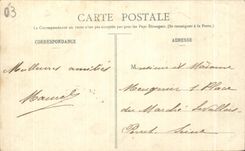 03
CARTE POSTALE
La Correspondance au verso n'est pas acceptée par tous les Pays Étrangers (Se renseigner à la Poste)
CORRESPONDANCE
ADRESSE
Meilleures amitiés
Monsieur et Madame
1 Place
du Marché Levallois
Perret Seine